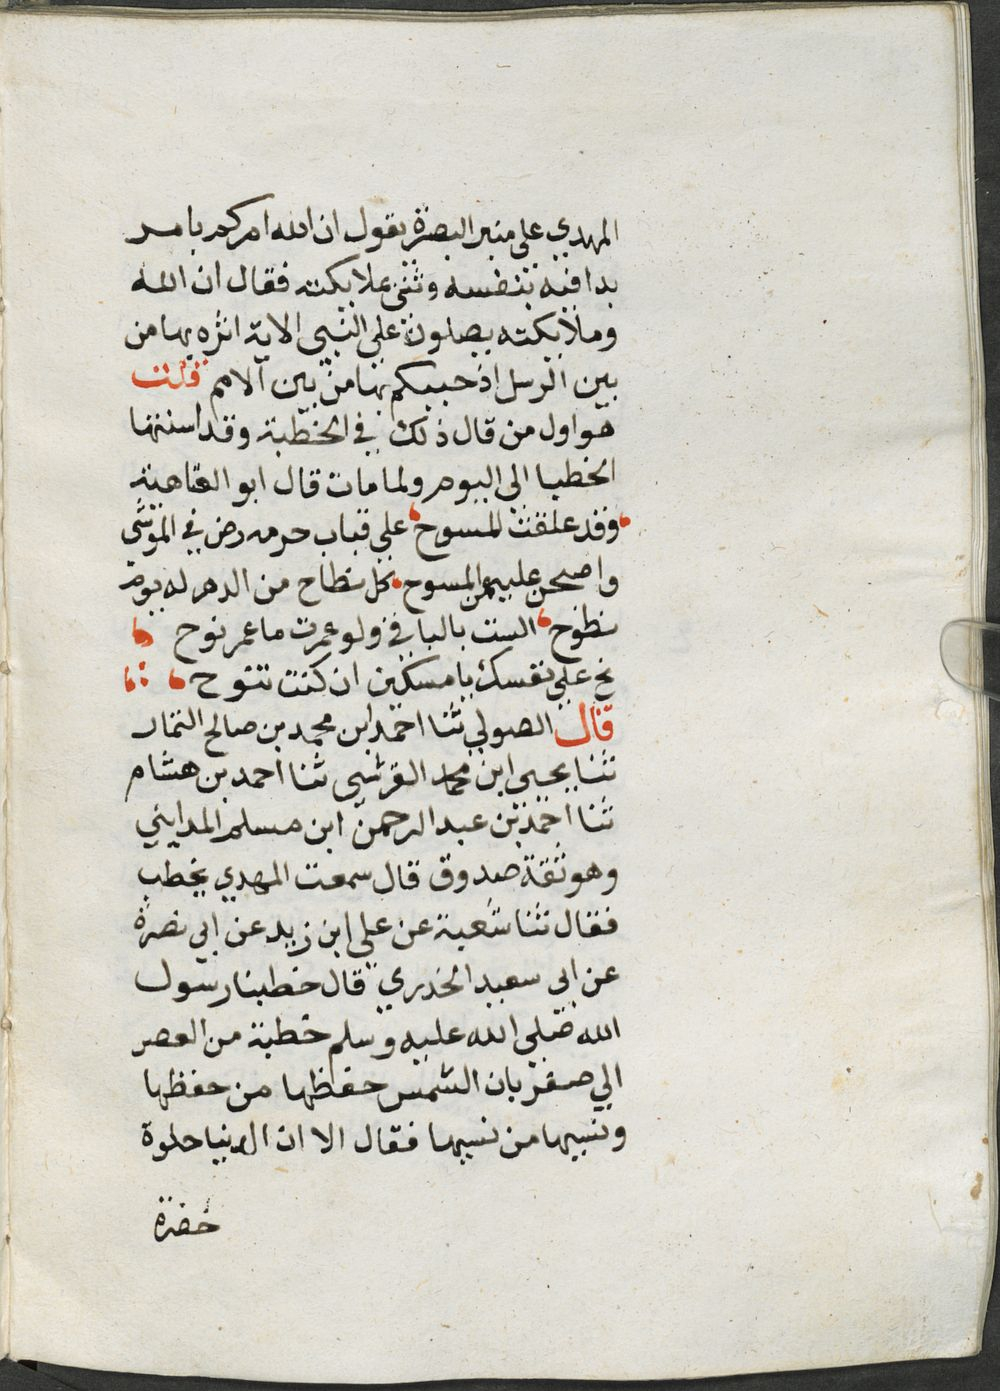 المهدي على منبر البصرة يقول ان الله امركم بامر
بدا فيه بنفسه وثنى بملايكته فقال ان الله
وملايكته يصلون على النبي الاية اثره بها من
بين الرسل اذ حببكم بها من بين الامم قلت
هو اول من قال ذلك في الخطبة وقد استنها
الخطبا الى اليوم ولما مات قال ابو العتاهية
وقد علقت المسوح على قباب حرمه رحن في الموشى
واصبحن عليهن المسوح كل نطاح من الدهر له يوم
نطوح الست بالباقي ولو عمرت ما عمر نوح
نح على نفسك يا مسكين ان كنت تنوح
قال الصولي ثنا احمد ابن محمد بن صالح التمار
ثنا يحيى ابن محمد القرشي ثنا احمد بن هشام
ثنا احمد بن عبد الرحمن ابن مسلم المدايني
وهو ثقة صدوق قال سمعت المهدي يخطب
فقال ثنا شعبة عن علي ابن زيد عن ابي نضرة
عن ابي سعيد الخدري قال خطبنا رسول
الله صلى الله عليه وسلم خطبة من العصر
الي مغربان الشمس حفظها من حفظها
ونسيها من نسيها فقال الا ان الدنيا حلوة
خضرة